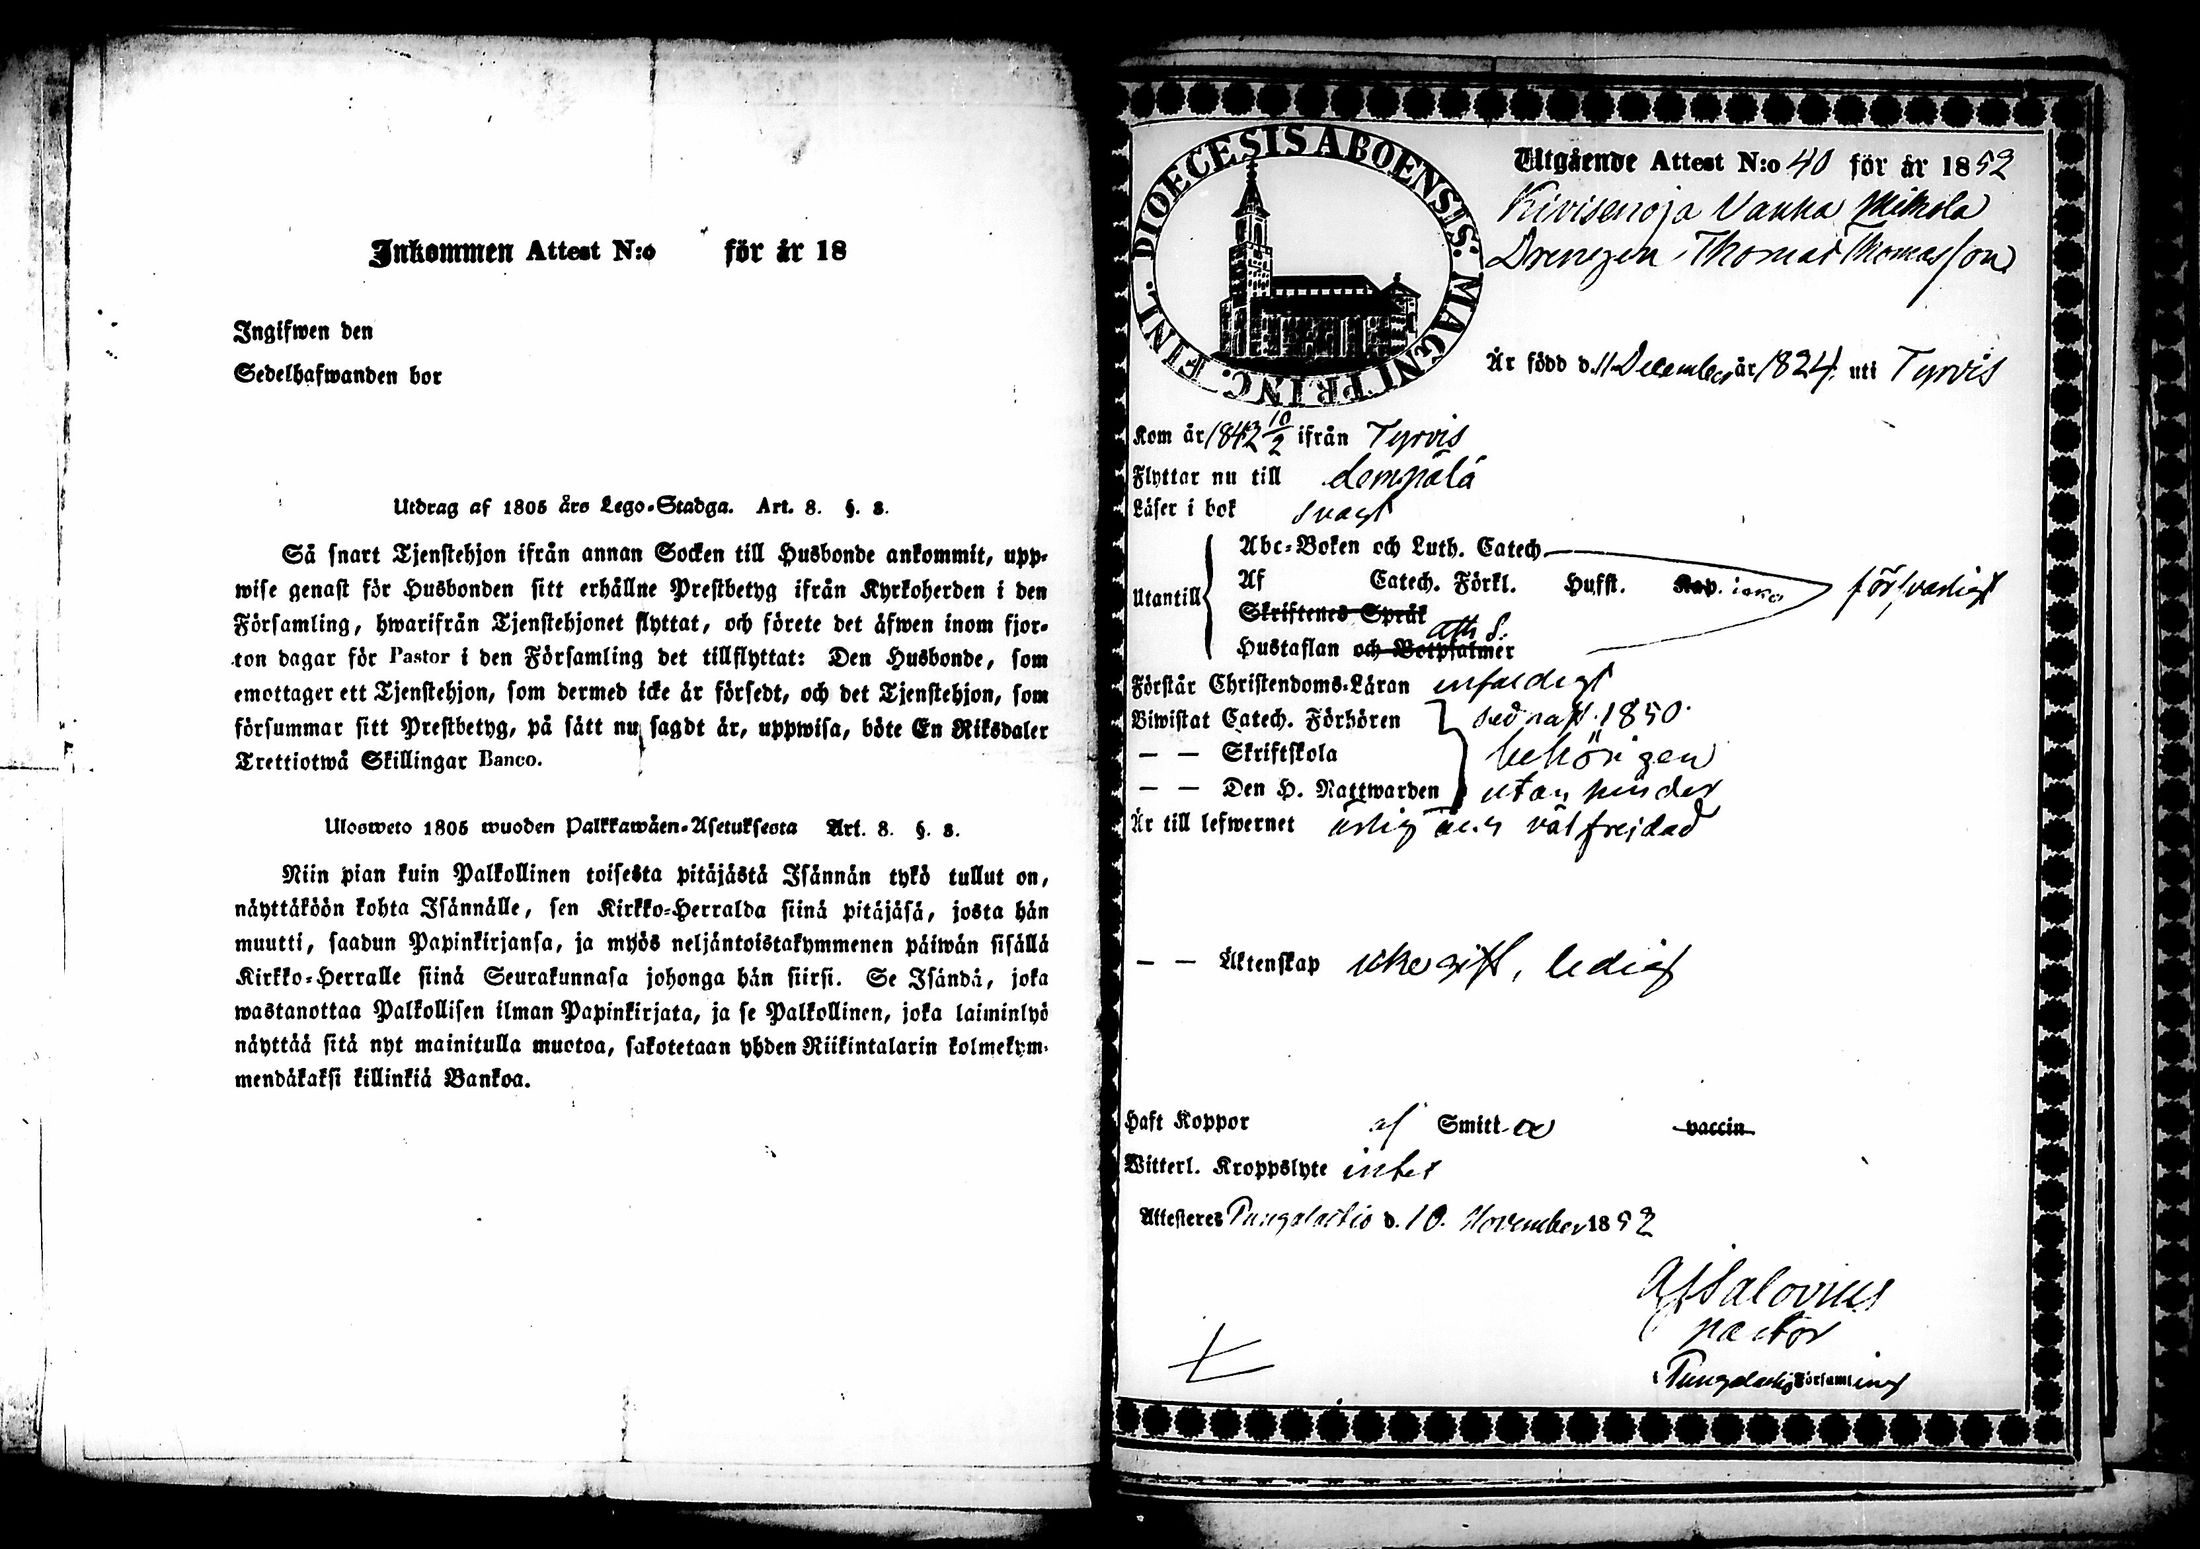 Inkommen Attest N:o för år 18
Ingifwen den
Sedelhafwanden bor
Utdrag af 1805 års Lego-Stadga. Art. 8. §. 8.
Så snart Tjenstehjon ifrån annan Socken till Husbonde ankommit, upp-
wise genast för Husbonden sitt erhållne Prestbetyg ifrån Kyrkoherden i den
Församling, hwarifrån Tjenstehjonet flyttat, och förete det äfwen inom fjor-
ton dagar för Pastor i den Församling det tillflyttat: Den Husbonde, som
emottager ett Tjenstehjon, som dermed icke är försedt, och det Tjenstehjon, som
försummar sitt Prestbetyg, på sätt nu sagdt är, uppwisa, böte En Riksdaler
Trettiotwå Skillingar Banco.
Ulosweto 1805 wuoden Palkkawäen-Asetuksesta Art. 8. §. 8.
Niin pian kuin Palkollinen toisesta pitäjästä Isännän tykö tullut on,
näyttäköön kohta Isännälle, sen Kirkko-Herralda siinä pitäjäsä, josta hän
muutti, saadun Papinkirjansa, ja myös neljäntoistakymmenen päiwän sisällä
Kirkko-Herralle siinä Seurakunnasa johonga hän siirsi. Se Isändä, joka
wastanottaa Palkollisen ilman Papinkirjata, ja se Palkollinen, joka laiminlyö
näyttää sitä nyt mainitulla muotoa, sakotetaan yhden Riikintalarin kolmekym-
mendäkaksi killinkiä Bankoa.
DIOECESIS ABOENSIS: MAGNI PRINC. FINL.
Utgående Attest N:o 40 för år 1852
Kivisenoja Vanha Mikola
Drengen Thomas Thomasson
Är född d. 11 December år 1824 uti Tyrvis
Kom år 1842 10/2 ifrån Tyrvis
Flyttar nu till Lempälä
Läser i bok svagt
Utantill
Abc-Boken och Luth. Catech
Af Catech. Förkl. Hufst. Kap. icke försvarligt
Skriftenes Språk
Hustaflan och Botpsalmer Ath S.
Förstår Christendoms-Läran enfaldigt
Biwistat Catech. Förhören sednast 1850
— — Skriftskola behörigen
— — Den H. Nattwarden utan hinder
Är till lefwernet ärlig och välfrejdad
— — Äktenskap icke gift, ledig
Haft Koppor af Smitta vaccin
Witterl. Kroppslyte intet
Attesteres Pungalaitio d. 10. November 1852
Salovius
pastor
i Pungalaitio Församling